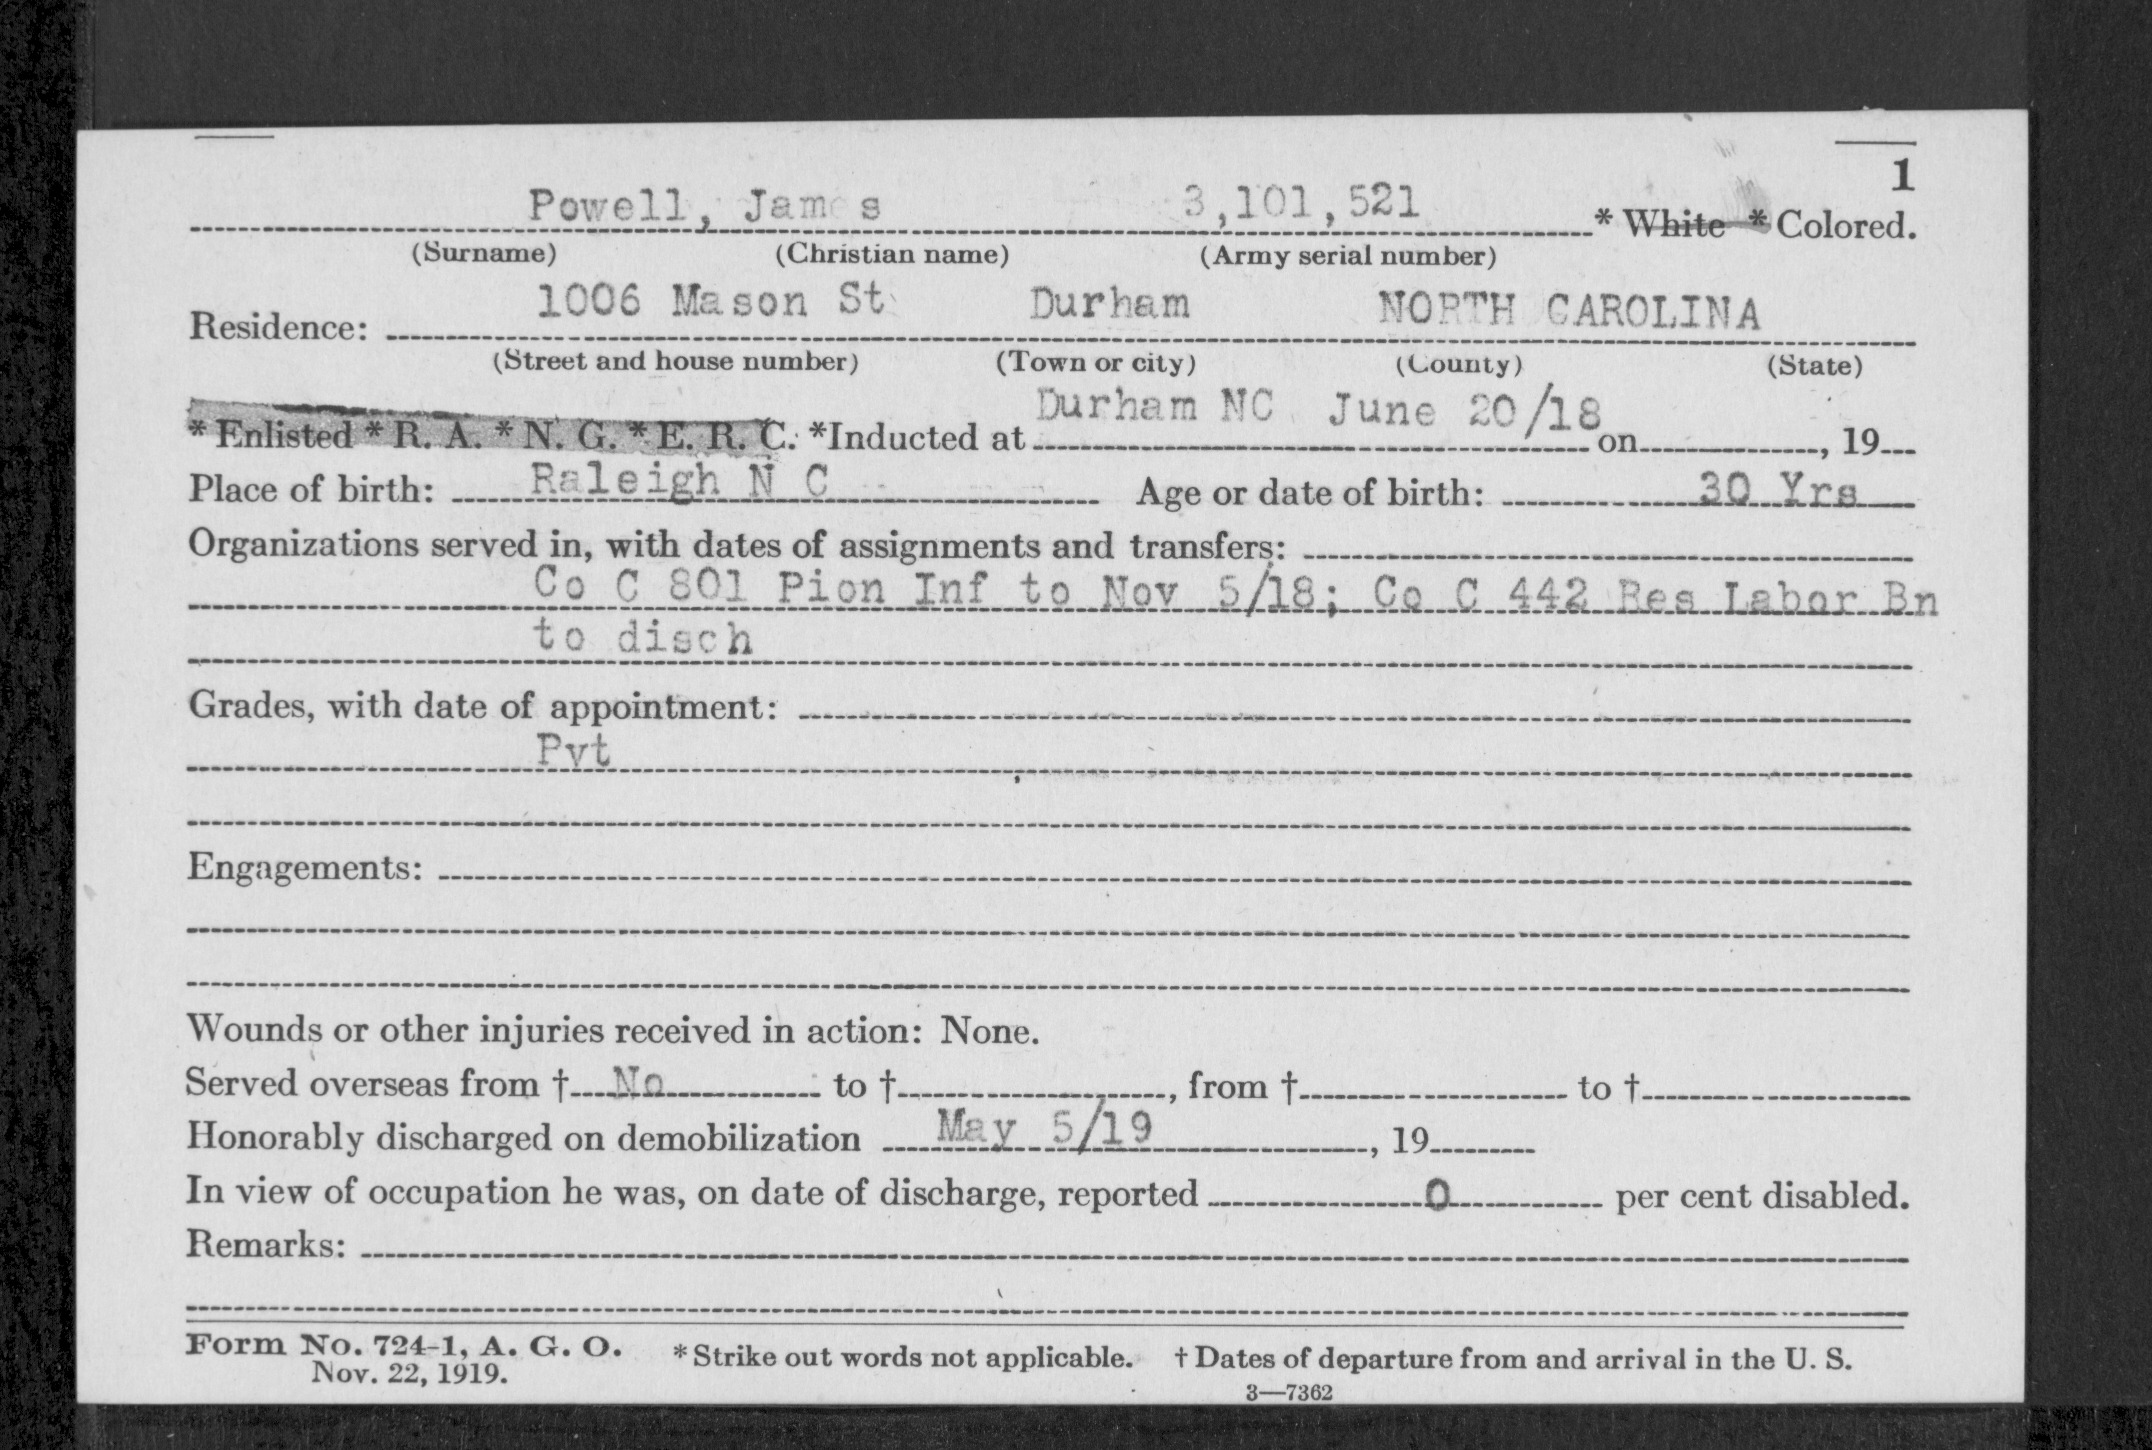 1
Powell, James 3,101,521 * White * Colored.
(Surname) (Christian name) (Army serial number)
Residence: 1006 Mason St Durham NORTH CAROLINA
(Street and house number) (Town or city) (County) (State)
* Enlisted * R. A. * N. G. * E. R. C. *Inducted at Durham NC June 20/18 on , 19
Place of birth: Raleigh N C Age or date of birth: 30 Yrs
Organizations served in, with dates of assignments and transfers:
Co C 801 Pion Inf to Nov 5/18; Co C 442 Res Labor Bn
to disch
Grades, with date of appointment:
Pvt
Engagements:
Wounds or other injuries received in action: None.
Served overseas from † No to † , from † to †
Honorably discharged on demobilization May 5/19 , 19
In view of occupation he was, on date of discharge, reported 0 per cent disabled.
Remarks:
Form No. 724-1, A. G. O. * Strike out words not applicable. † Dates of departure from and arrival in the U. S.
Nov. 22, 1919.
3—7362